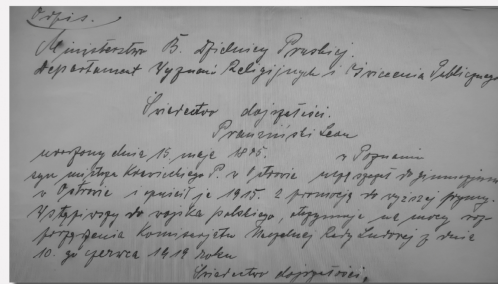 Odpis.
Ministerstwo B. Dzielnicy Pruskiej.
Departament Wyznań Religijnych i Oświecenia Publicznego
Świadectwo dojrzałości.
Leon
urodzony dnia 15 maja 1895. w Poznaniu
syn mistrza P. w Ostrowie uczęszczał do gimnazjum
w Ostrowie i opuścił je 1915. z promocją do wyższej prymy.
Wstąpiwszy do wojska polskiego, otrzymuje na mocy roz-
porządzenia Komisarjatu Naczelnej Rady Ludowej z dnia
10. go czerwca 1919 roku
Świadectwo dojrzałości.